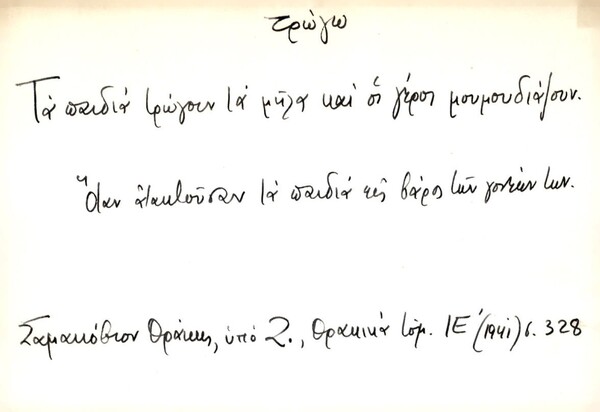 τρώγω
Τὰ παιδιά τρώγουν τὰ μῆλα καὶ οἱ γέροι μουμουδιάζουν.
Ὅταν ἀτακτοῦσαν τὰ παιδιά εἰς βάρος τῶν γονέων των.
Σαμακόβιον Θράκης, ὑπό Ζ., Θρακικά τόμ. ΙΕ΄ (1941) σ. 328